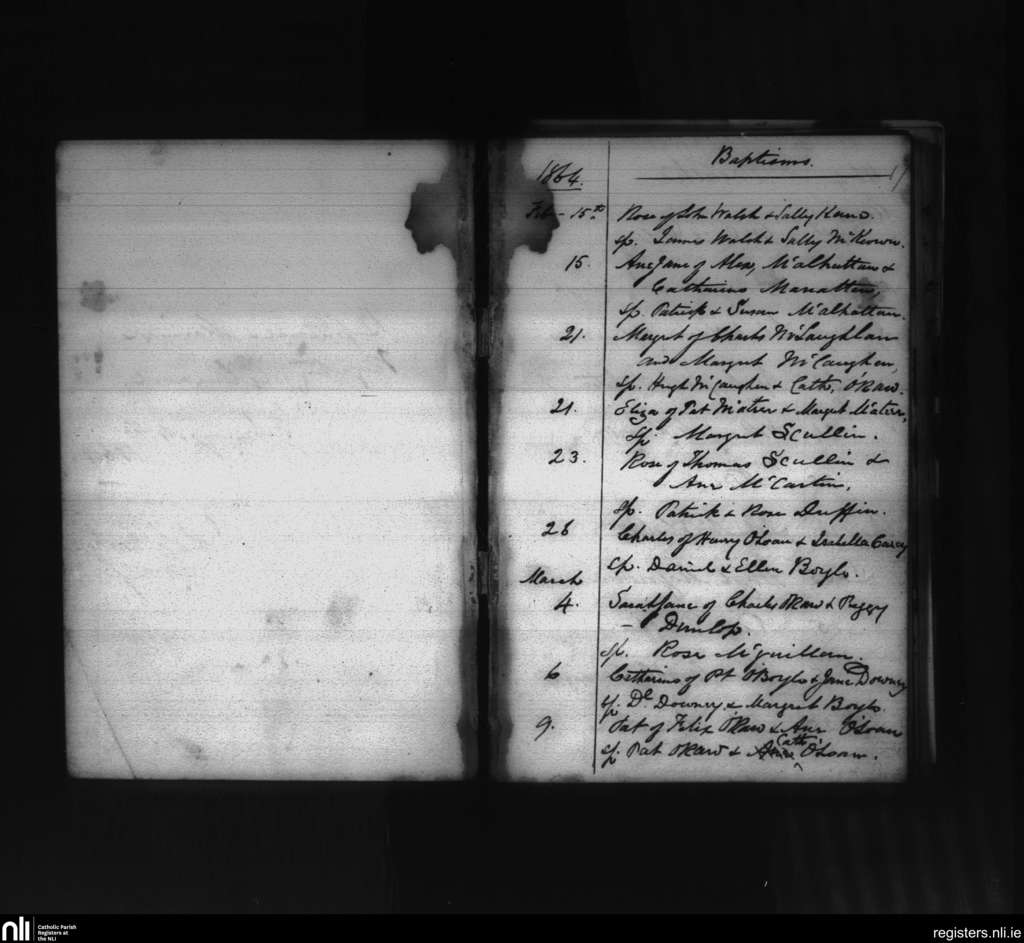 Baptisms.
1864.
Feb - 15th Rose of John Walsh & Sally Kane.
sp. James Walsh & Sally McKeown.
15. Ane Jane of Alex,
Catharine
sp. Patrick & Susan
21. Margret of Charles McLaughlan
and Margret McCaughen,
sp. Hugh McCaughen & Cath. O'Raw.
21. Eliza of Pat & Margret
sp. Margret Scullin.
23. Rose of Thomas Scullin &
Ane McCartin,
sp. Patrick & Rose Duffin.
28 Charles of Henry O'Loan & Isabella Carey
sp. Daniel & Ellen Boyle.
March
4. Sarah Jane of Charles O'Raw & Peggy
- Dunlop.
sp. Rose McQuillan.
6 Catharine of Pt O'Boyle & Jane Downey
sp. Dl. Downey & Margret Boyle.
9. Pat of Felix O'Raw & Ane O'Loan
sp. Pat O'Raw & Cath. O'Loan.
nli
Catholic Parish
Registers at
the NLI
registers.nli.ie